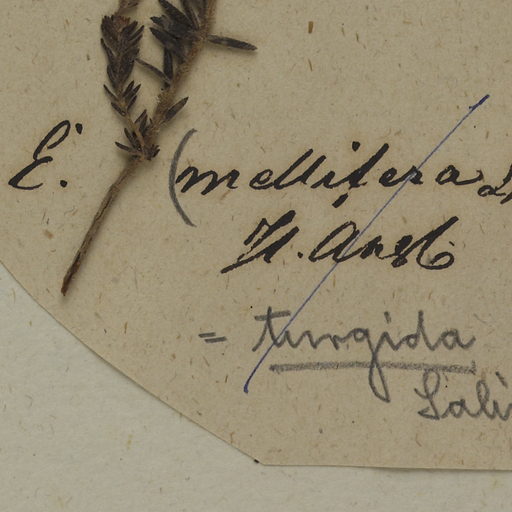 E. (mellifera
H. Angl.
= turgida
Salis